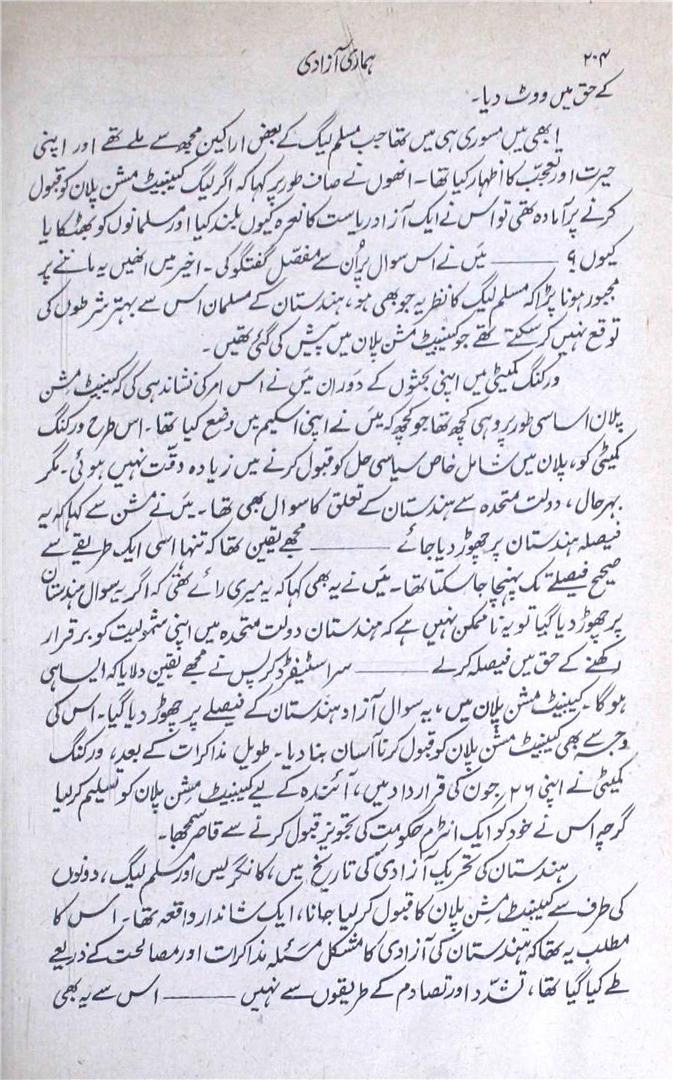 ۲۰۴
ہماری آزادی
کے حق میں ووٹ دیا۔
ابھی میں مسوری ہی میں تھا جب مسلم لیگ کے بعض اراکین مجھ سے ملے تھے اور اپنی
حیرت اور تعجّب کا اظہار کیا تھا۔ انھوں نے صاف طور پر کہا کہ اگر لیگ کیبنیٹ مشن پلان کو قبول
کرنے پر آمادہ تھی تو اس نے ایک آزاد ریاست کا نعرہ کیوں بلند کیا اور مسلمانوں کو بھٹکایا
کیوں ؟ ——— میَں نے اس سوال پر اُن سے مفصّل گفتگو کی۔ اخیر میں انھیں یہ ماننے پر
مجبور ہونا پڑا کہ مسلم لیگ کا نظریہ جو بھی ہو، ہندستان کے مسلمان اس سے بہتر شرطوں کی
توقع نہیں کر سکتے تھے جو کیبنیٹ مشن پلان میں پیش کی گئی تھیں۔
ورکنگ کمیٹی میں اپنی بحثوں کے دَوران میَں نے اس امر کی نشاندہی کی کہ کیبنیٹ مشن
پلان اساسی طور پر وہی کچھ تھا جو کچھ کہ میَں نے اپنی اسکیم میں وضع کیا تھا۔ اس طرح ورکنگ
کمیٹی کو، پلان میں شامل خاص سیاسی حل کو قبول کرنے میں زیادہ دقّت نہیں ہوئی۔ مگر
بہرحال، دولت متحدہ سے ہندستان کے تعلق کا سوال بھی تھا۔ میَں نے مشن سے کہا کہ یہ
فیصلہ ہندستان پر چھوڑ دیا جائے ——— مجھے یقین تھا کہ تنہا اسی ایک طریقے سے
صحیح فیصلے تک پہنچا جا سکتا تھا۔ میَں نے یہ بھی کہا کہ یہ میری رائے تھی کہ اگر یہ سوال ہندستان
پر چھوڑ دیا گیا تو یہ ناممکن نہیں ہے کہ ہندستان دولت متحدہ میں اپنی شمولیت کو برقرار
رکھنے کے حق میں فیصلہ کر لے ——— سر اسٹیفرڈ کرپس نے مجھے یقین دلایا کہ ایسا ہی
ہوگا۔ کیبنیٹ مشن پلان میں، یہ سوال آزاد ہندستان کے فیصلے پر چھوڑ دیا گیا۔ اس کی
وجہ سے بھی کیبنیٹ مشن پلان کو قبول کرنا آسان بنا دیا۔ طویل مذاکرات کے بعد، ورکنگ
کمیٹی نے اپنی ۲۶ جون کی قرارداد میں، آئندہ کے لیے کیبنیٹ مشن پلان کو تسلیم کر لیا
گرچہ اس نے خود کو ایک انٹرم حکومت کی تجویز قبول کرنے سے قاصر سمجھا۔
ہندستان کی تحریکِ آزادی کی تاریخ میں، کانگریس اور مسلم لیگ، دونوں
کی طرف سے کیبنیٹ مشن پلان کا قبول کر لیا جانا، ایک شاندار واقعہ تھا۔ اس کا
مطلب یہ تھا کہ ہندستان کی آزادی کا مشکل مسئلہ مذاکرات اور مصالحت کے ذریعے
طے کیا گیا تھا، تشدّد اور تصادم کے طریقوں سے نہیں ——— اس سے یہ بھی